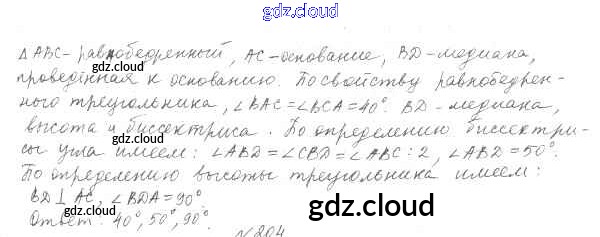 gdz.cloud
△ABC - равнобедренный, AC - основание, BD - медиана,
проведённая к основанию. По свойству равнобедрен-
ного треугольника, ∠BAC = ∠BCA = 40°. BD - медиана,
высота и биссектриса. По определению биссектри-
сы угла имеем: ∠ABD = ∠CBD = ∠ABC : 2, ∠ABD = 50°.
По определению высоты треугольника имеем:
BD ⊥ AC, ∠BDA = 90°.
Ответ: 40°, 50°, 90°.
gdz.cloud
gdz.cloud
№204